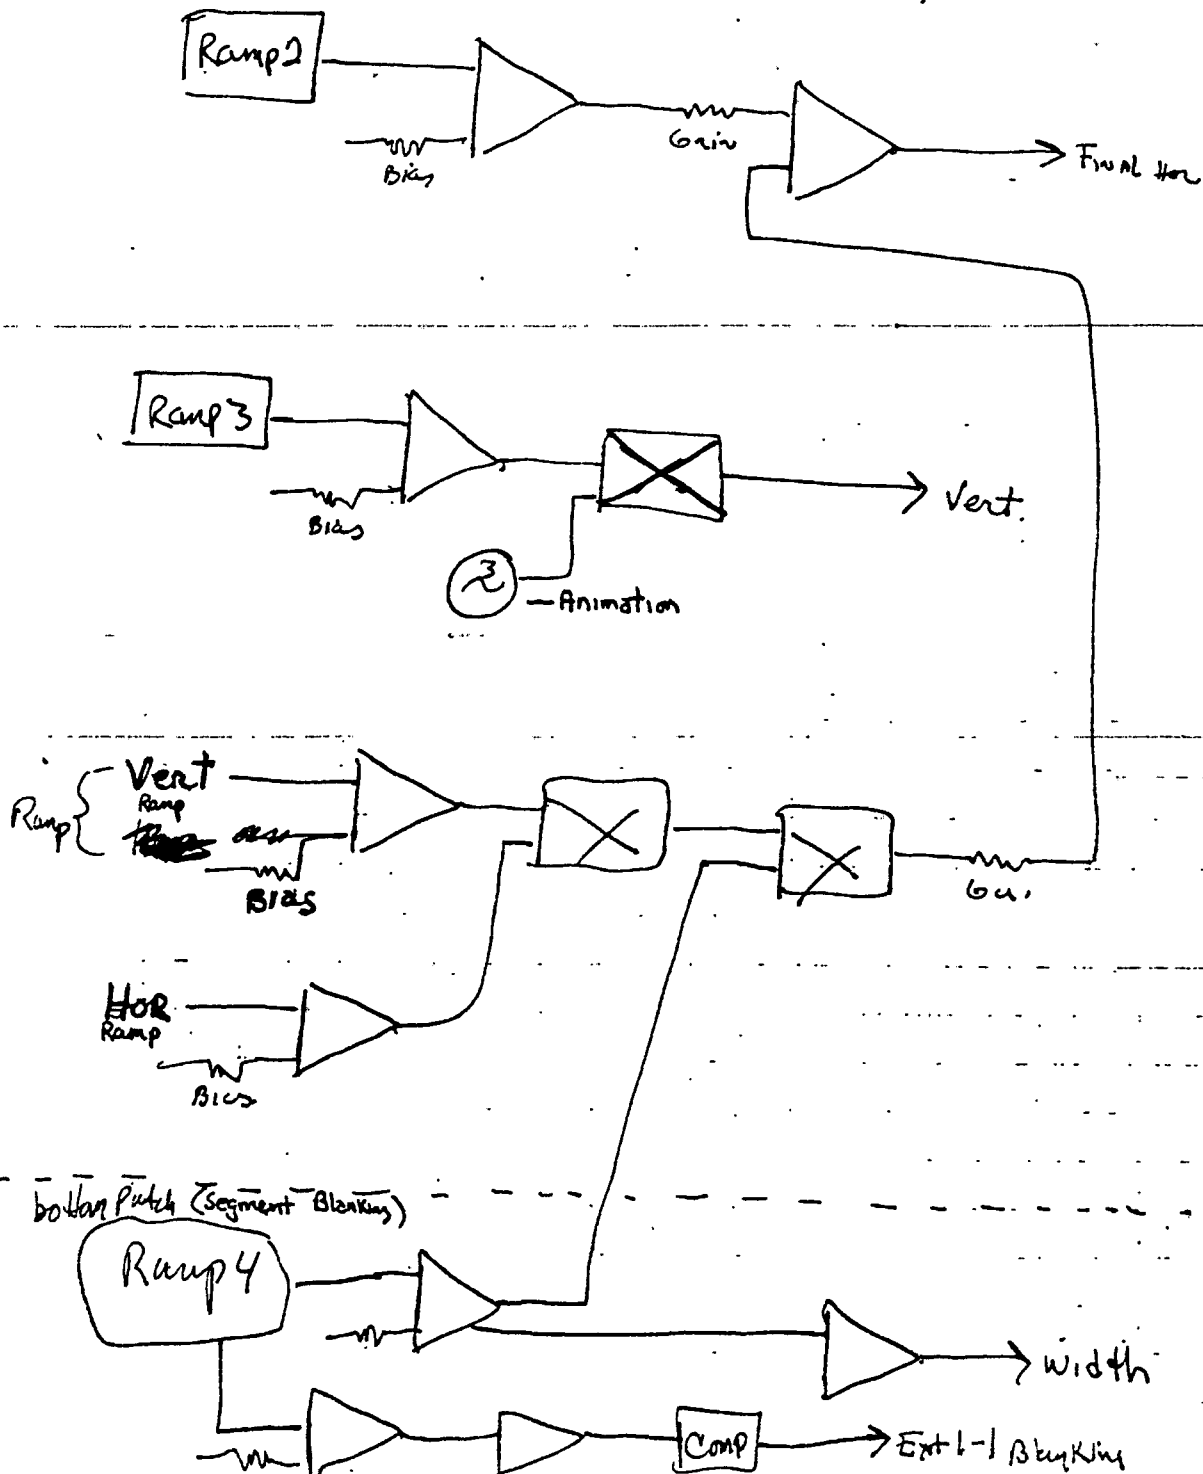 Ramp 2
Bias
Gain
FINAL Hor
Ramp 3
Bias
Vert.
3
Animation
Vert
Ramp
Ramp
Bias
Hor
Ramp
Bias
bottom Patch (segment Blanking)
Ramp 4
Width
Comp
Blanking